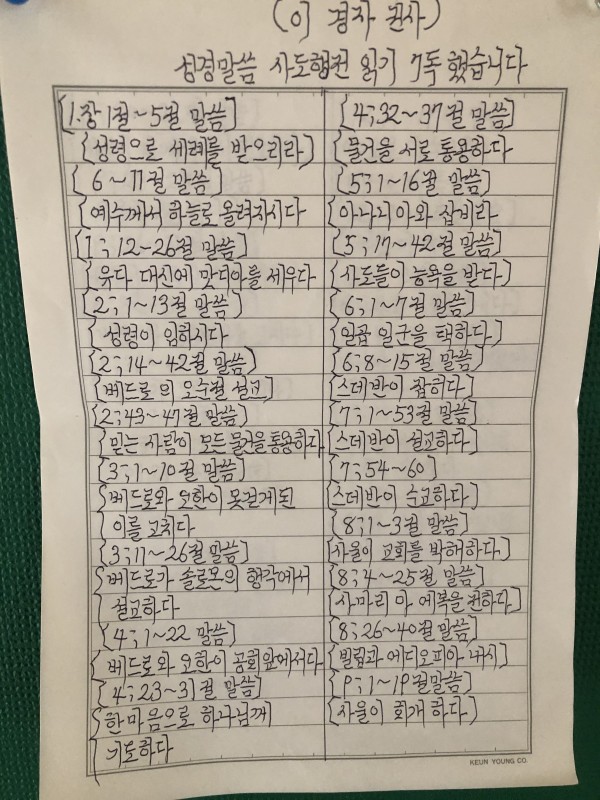 (이 경자 권사)
성경말씀 사도행전 읽기 7독 했습니다
[1장 1절~5절 말씀]
[성령으로 세례를 받으리라]
[6~11절 말씀]
[예수께서 하늘로 올려지시다
[1; 12~26절 말씀]
유다 대신에 맛디아를 세우다
[2; 1~13절 말씀]
[성령이 임하시다
[2; 14~42절 말씀]
[베드로의 오순절 설교]
[2; 43~47절 말씀]
믿는 사람이 모든 물건을 통용하다
[3; 1~10절 말씀]
[베드로와 요한이 못걷게된
이를 고치다
[3; 11~26절 말씀]
[베드로가 솔로몬의 행각에서
설교하다
[4; 1~22 말씀]
[베드로와 요한이 공회앞에서다
[4; 23~31절 말씀]
[한마음으로 하나님께
기도하다
[4; 32~37절 말씀]
[물건을 서로 통용하다
[5; 1~16절 말씀]
[아나니아와 삽비라
[5; 17~42절 말씀]
[사도들이 능욕을 받다]
[6; 1~7절 말씀]
[일곱 일군을 택하다]
[6; 8~15절 말씀]
[스데반이 잡히다]
[7; 1~53절 말씀]
[스데반이 설교하다]
[7; 54~60]
[스데반이 순교하다]
[8; 1~3절 말씀]
[사울이 교회를 박해하다]
[8; 4~25절 말씀]
[사마리아에 복을 전하다]
[8; 26~40절 말씀]
[빌립과 에디오피아 내시]
[9; 1~19절말씀]
[사울이 회개 하다]
KEUN YOUNG CO.